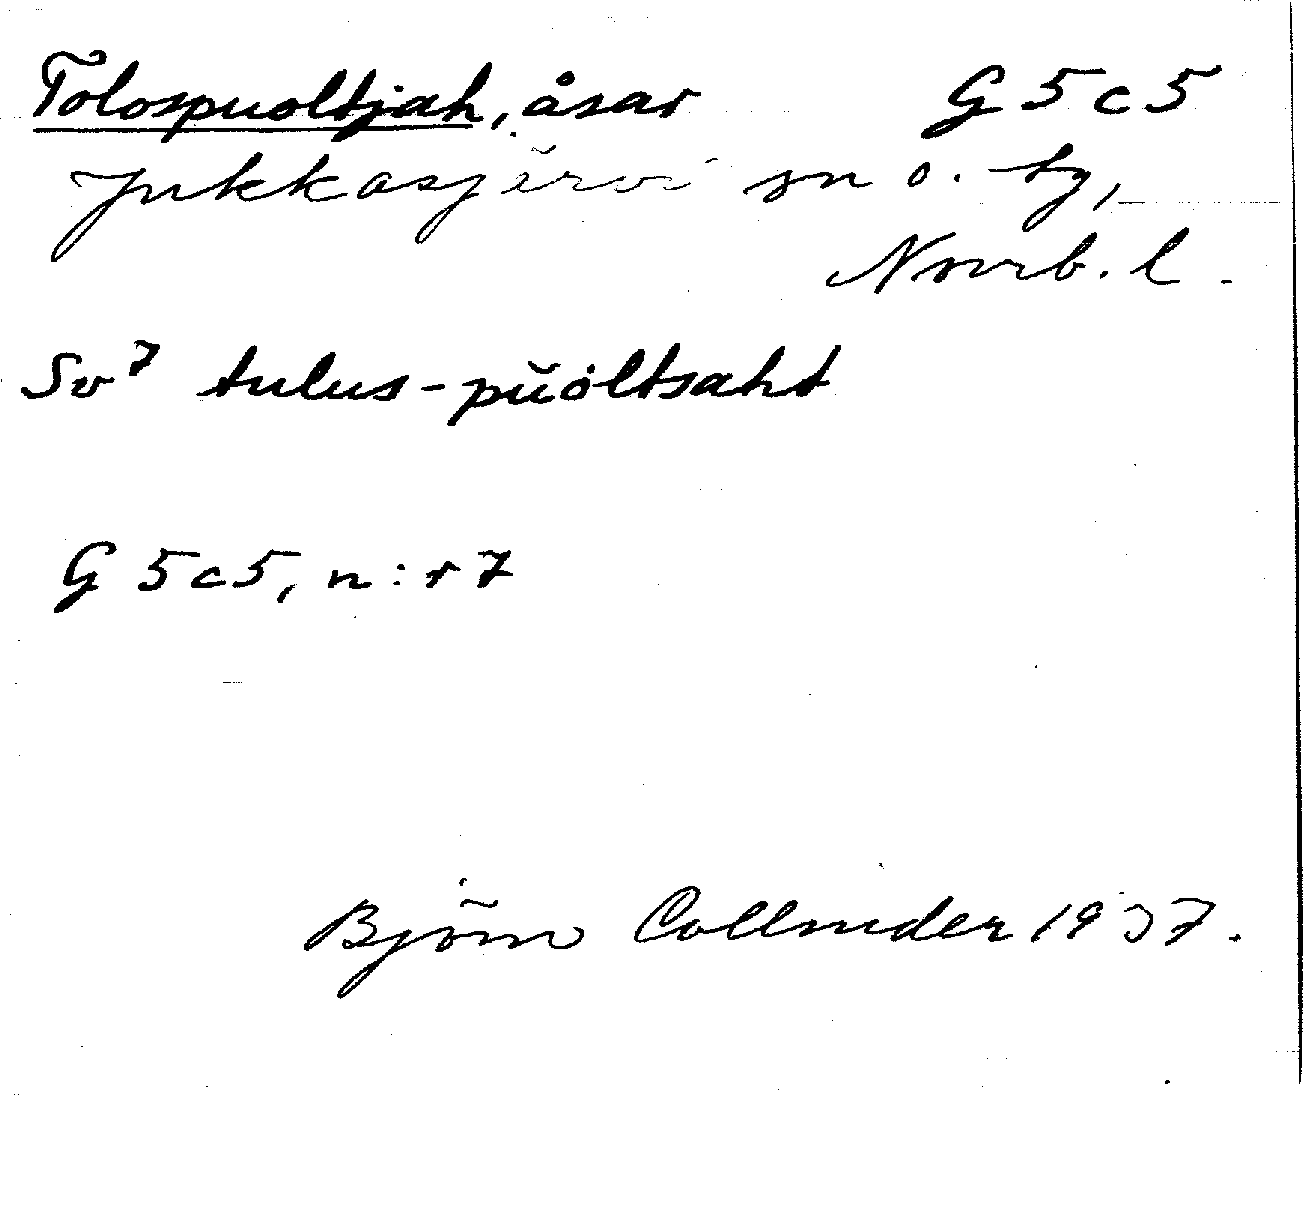 Tolospuoltjah, åsar G5c5
Jukkasjärvi sn o. tg,
Norrb. l.
Sv⁷ tulus-pŭoltsaht
G 5c5, n:r 7
Björn Collinder 1937.